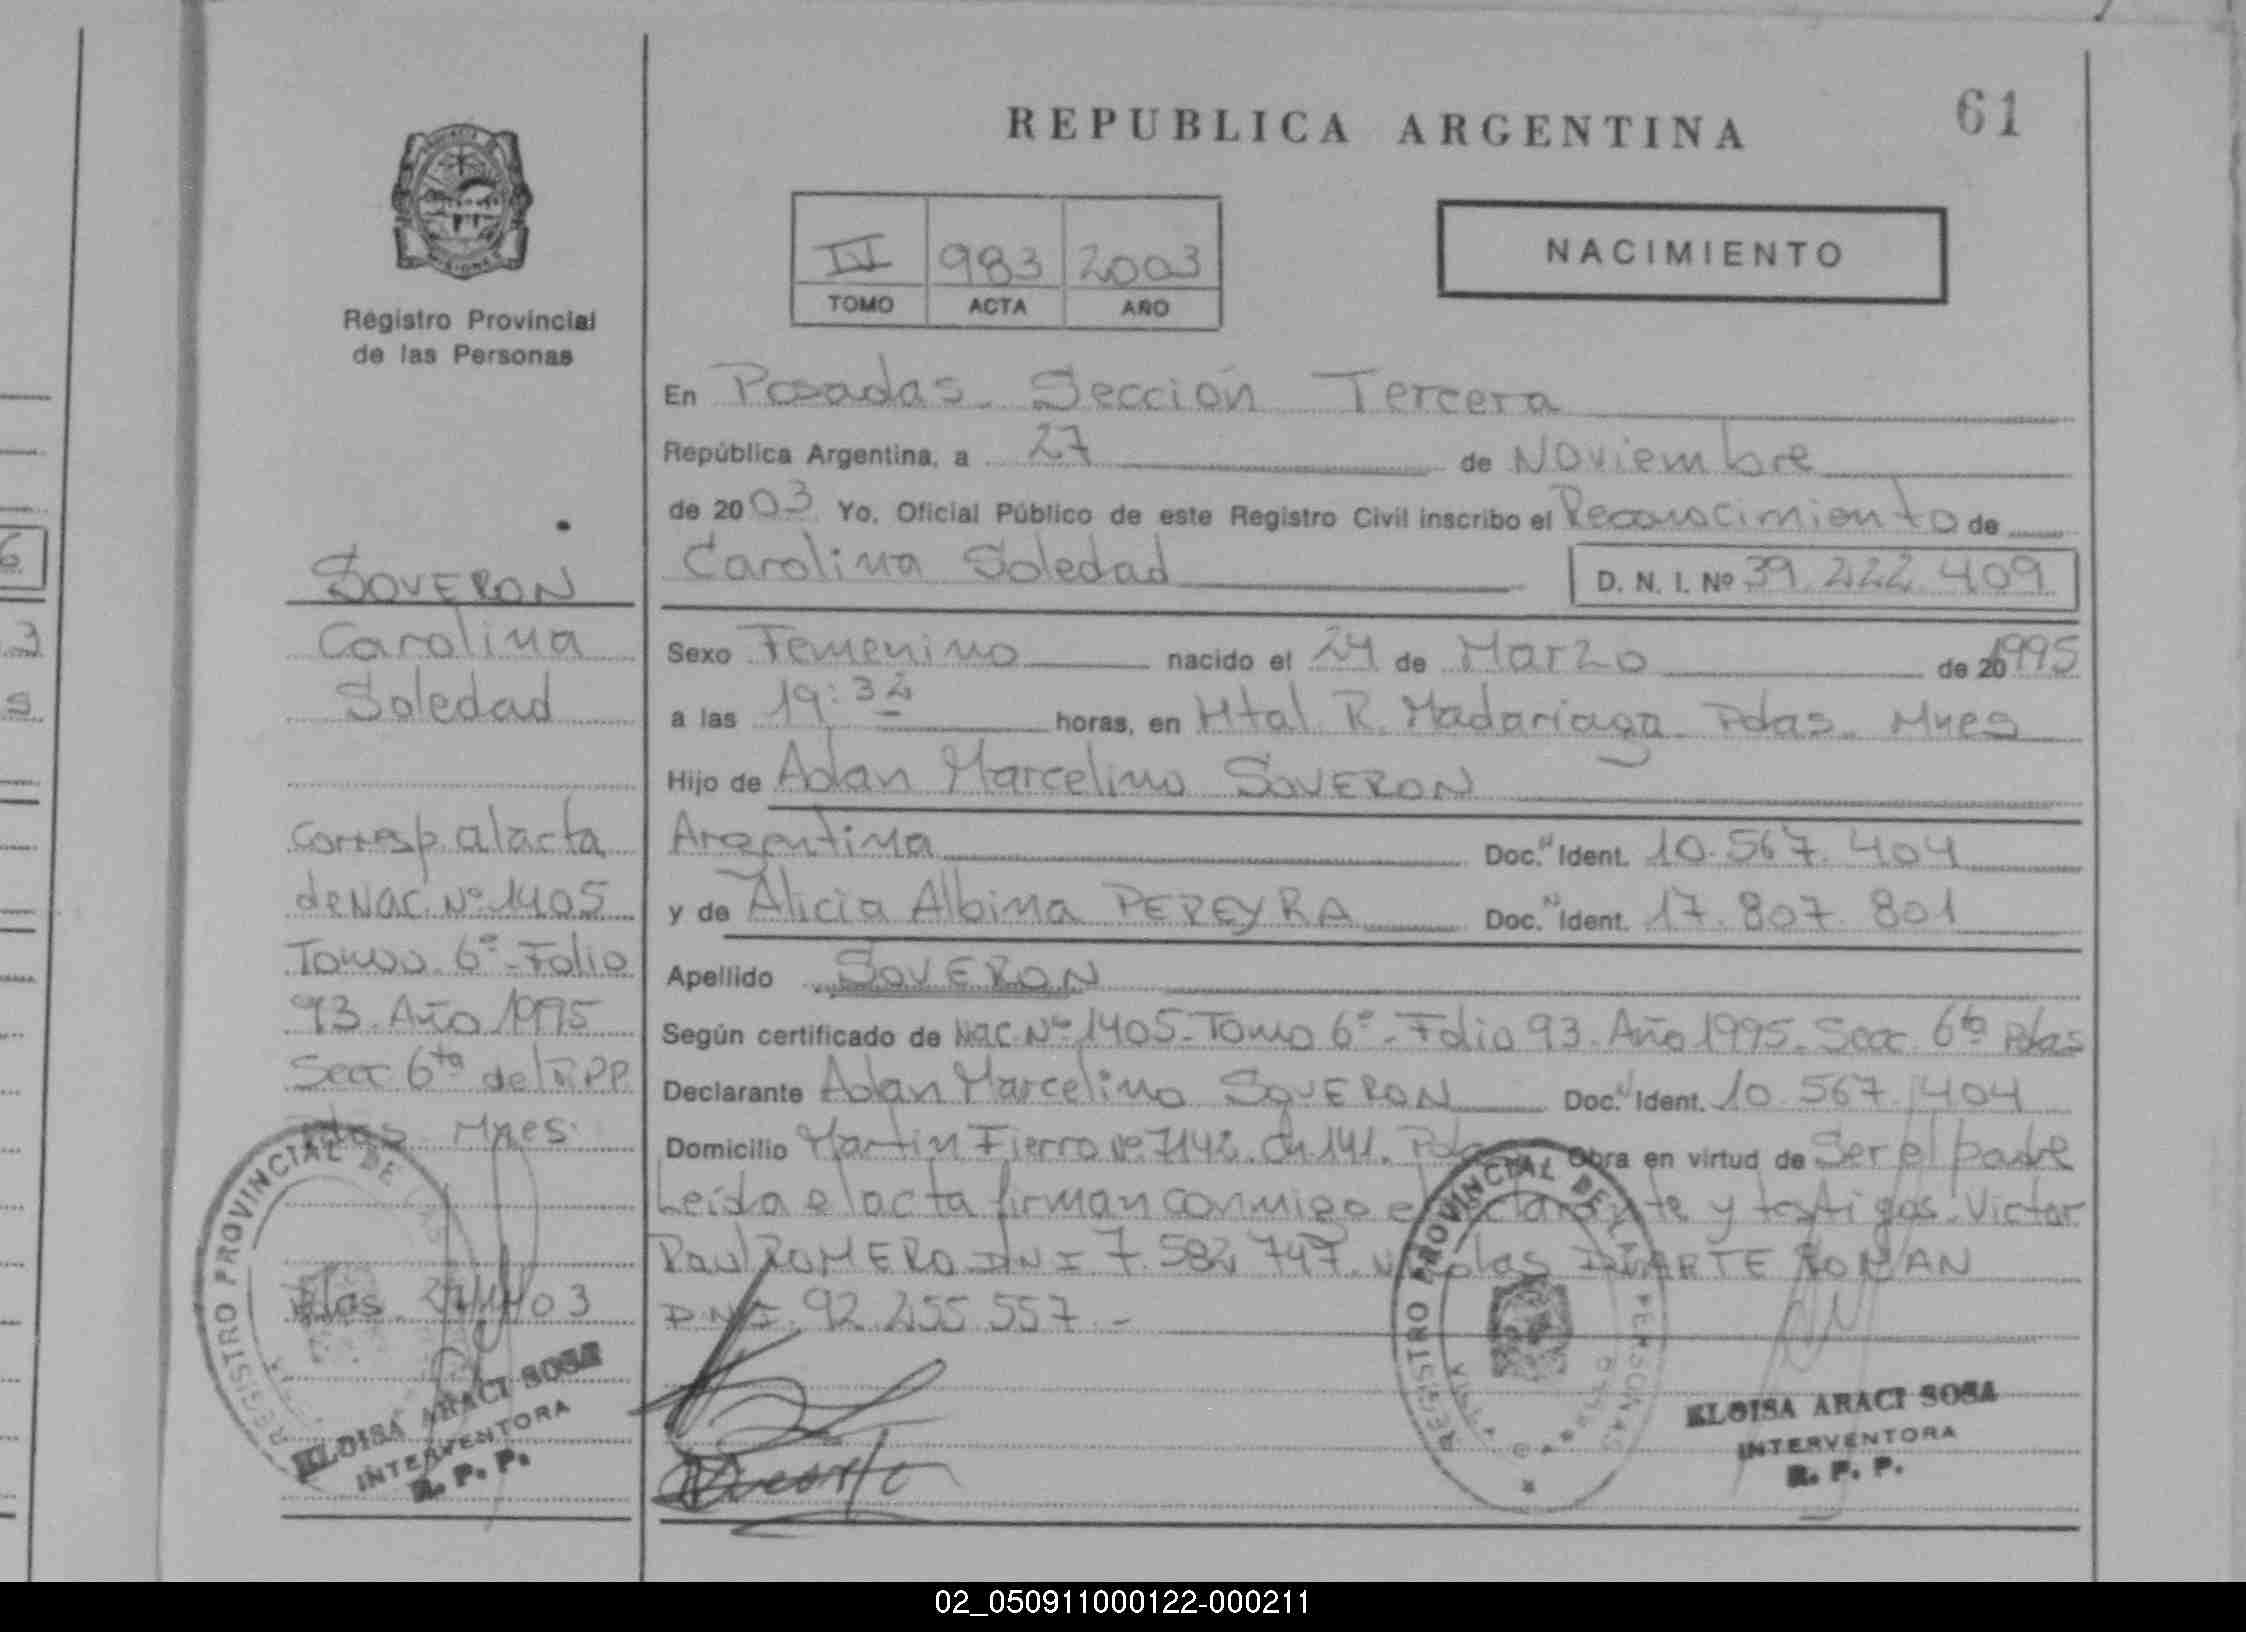 REPUBLICA ARGENTINA
61
TOMO
983
ACTA
2003
AÑO
NACIMIENTO
Registro Provincial
de las Personas
SOVERON
Carolina
Soledad
Corresp. al acta
de Nac. Nº 1405
Tomo 6º - Folio
93. Año 1995
Secc. 6ta del R.P.P.
Pdas. Mnes.
Pdas. 27/11/03
REGISTRO PROVINCIAL DE
ELOISA ARACI SOSA
INTERVENTORA
R. P. P.
En Posadas. Sección Tercera
República Argentina, a 27 de Noviembre
de 2003 Yo, Oficial Público de este Registro Civil inscribo el Reconocimiento de
Carolina Soledad D. N. I. Nº 39.222.409
Sexo Femenino nacido el 24 de Marzo de 20 1995
a las 19:32 horas, en Htal R. Madariaga. Pdas. Mnes
Hijo de Adan Marcelino SOVERON
Argentina Doc.N Ident. 10.567.404
y de Alicia Albina PEREYRA Doc.N Ident. 17.807.801
Apellido SOVERON
Según certificado de Nac. Nº 1405 - Tomo 6º - Folio 93. Año 1995. Secc. 6ta Pdas
Declarante Adan Marcelino SOVERON Doc. Ident. 10.567.404
Domicilio Martin Fierro Nº 7142. Ch 141. Pdas Obra en virtud de Ser el padre
Leida el acta firman conmigo el declarante y testigos. Victor
Raul ROMERO DNI 7.582.747. Nicolas DUARTE ROMAN
DNI. 92.255.557. -
REGISTRO PROVINCIAL DE LAS PERSONAS
ELOISA ARACI SOSA
INTERVENTORA
R. P. P.
02_050911000122-000211